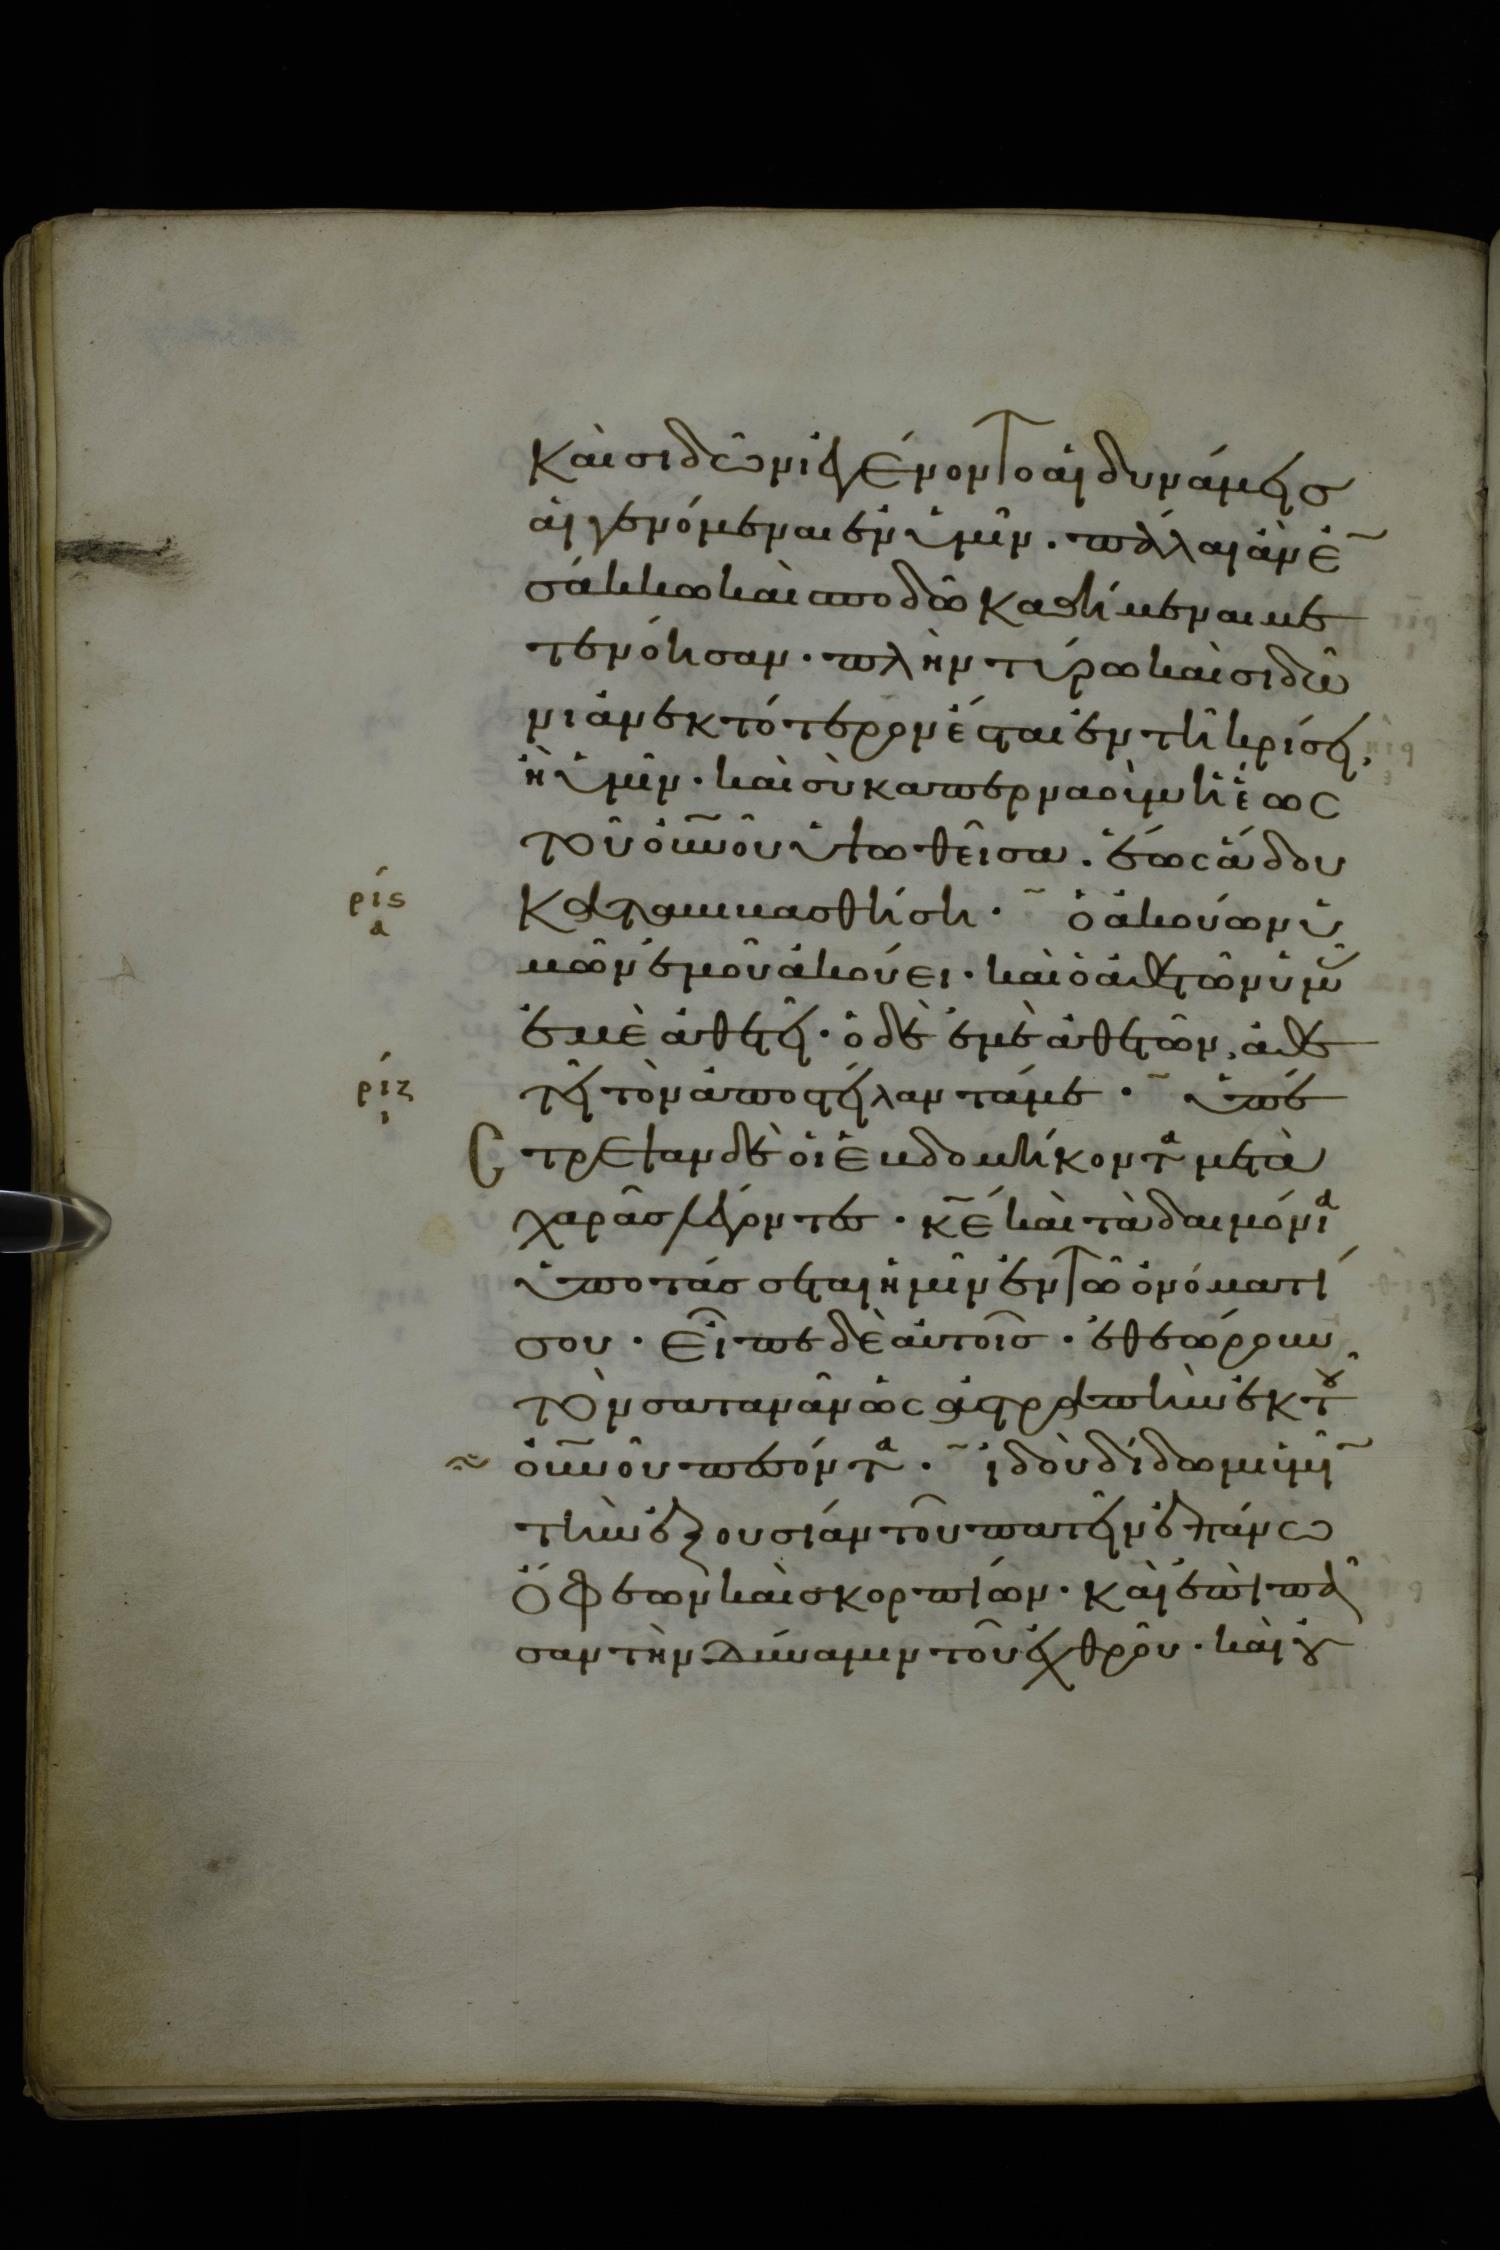 καὶ σιδῶνι ἐγένοντο αἱ δυνάμεις
αἱ γενόμεναι ἐν ὑμῖν · πάλαι ἂν ἐ̄
σάκκω καὶ σποδῶ καθήμεναι με
τενόησαν · πλὴν τύρω καὶ σιδῶ
νι ἀνεκτότερον ἔσται ἐν τῆ κρίσει,
ἢ ὑμῖν · καὶ σὺ καπερναοὺμ ἡ ἕως
τοῦ οὐνοῦ ὑψωθεῖσα · ἕως ἅδου
ρις
α
καταβιβασθήση · ὁ ἀκούων ὑ
μῶν ἐμοῦ ἀκούει · καὶ ὁ ἀθετῶν ὑμᾶ
ἐμὲ ἀθετεῖ · ὁ δὲ ἐμὲ ἀθετῶν, ἀθε
ριζ
ι
τεῖ τὸν ἀποστείλαντά με · ὑπέ
στρεψαν δὲ οἱ ἑβδομήκοντα μετὰ
χαρᾶς λέγοντες · κε καὶ τὰ δαιμόνια
ὑποτάσσεται ἡμῖν ἐν τῶ ὀνόματί
σου · εἶπε δὲ αὐτοῖς · ἐθεώρουν
τὸν σατανᾶν ὡς ἀστραπὴν ἐκ τοῦ
οὐνοῦ πεσόντα · ἰδοὺ δίδωμι ὑμῖ
τὴν ἐξουσίαν τοῦ πατεῖν ἐπάνω
ὄφεων καὶ σκορπίων · καὶ ἐπὶ πᾶ
σαν τὴν δύναμιν τοῦ ἐχθροῦ · καὶ οὐ